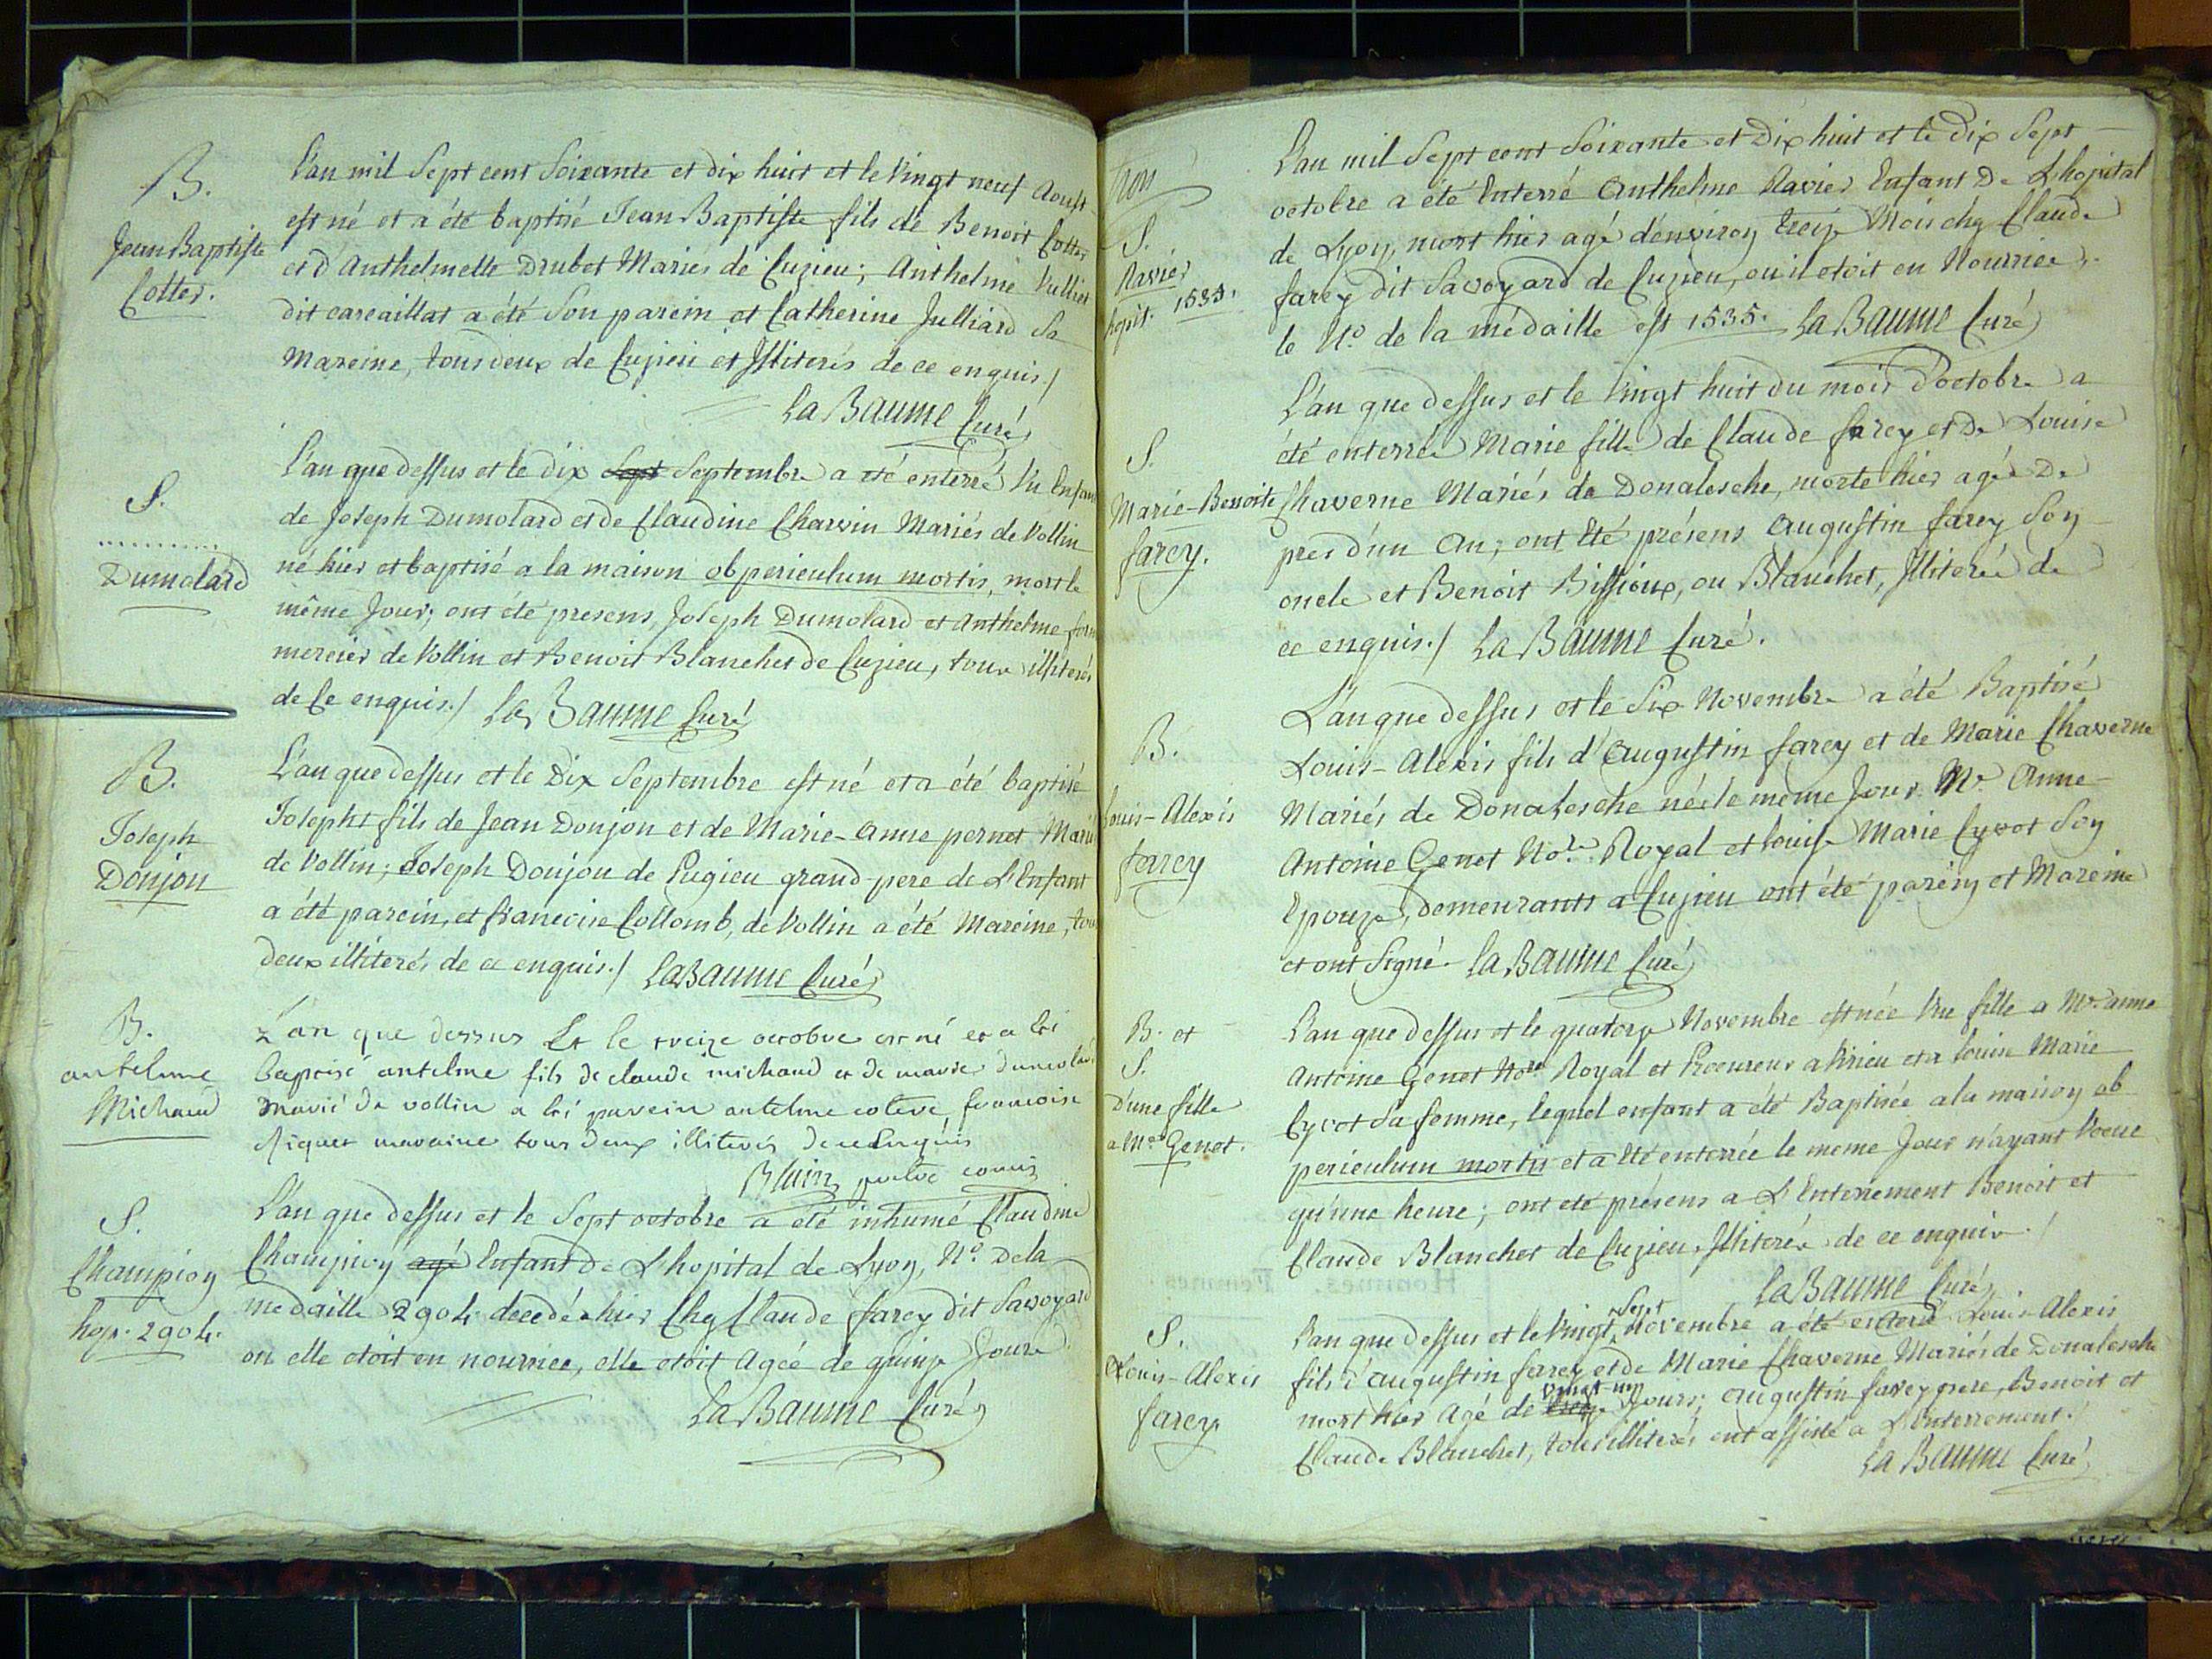 B.
Jean Baptiste
Cotter.
L'an mil Sept cent Soixante et dix huit et le Vingt neuf Aoust
est né et a été baptisé Jean Baptiste fils de Benoit Cotter
et d'Anthelmette Drubet Mariés de Cuzieu; Anthelme Vulliet
dit carcaillat a été Son parein et Catherine Julliard Sa
Mareine, tous deux de Cuzieu et Illiterés de ce enquis./
La Baume Curé
S.
..........
Dumolard
L'an que dessus et le dix Sept Septembre a été enterré Vn Enfant
de Joseph Dumolard et de Claudine Charvin Mariés de Vollin
né hier et baptisé a la maison ob periculum mortis, mort le
même Jour; ont été presens, Joseph Dumolard et Anthelme
mercier de Vollin et Benoit Blanchet de Cuzieu, tous illiterés
de Ce enquis./ La Baume Curé
B.
Joseph
Donjon
L'an que dessus et le Dix Septembre est né et a été baptisé
Joseph fils de Jean Donjon et de Marie-Anne pernet Mariés
de Vollin; Joseph Donjon de Pugieu grand-pere de L'Enfant
a été parein, et francoise Collomb, de Vollin a été Mareine, tous
deux illiterés de ce enquis./ La Baume Curé
B.
antelme
Michaud
L'an que dessus Et le treize octobre est né et a été
baptisé antelme fils de claude michaud et de marie dumolard
marié de vollin a été parein antelme francoise
Riquet maraine tous deux illiterés de ce Enquis
Blain
S.
Champion
hop. 2904.
L'an que dessus et le Sept octobre a été inhumé Claudine
Champion agé Enfant de L'hopital de Lyon, No. De la
medaille 2904 decedée hier Chez Claude farcy dit Savoyard
ou elle etoit en nourrice, elle etoit Agée de quinze Jours
La Baume Curé
S.
Ravier
hopit. 1535.
L'an mil Sept cent Soixante et Dix huit et le Dix Sept
octobre a été Enterré Anthelme Ravier Enfant De L'hopital
de Lyon, mort hier agé d'environ treize Mois chez Claude
farcy dit Savoyard de Cuzieu, ou il etoit en Nourrice,
le No. de la médaille est 1535. La Baume Curé
S.
Marie-Benoite
farcy.
L'an que dessus et le Vingt huit du mois d'octobre a
été enterrée Marie fille de Claude farcy et De Louise
Chaverne Mariés de Donalesche, morte hier agée De
pres d'un An; ont Eté présens Augustin farcy Son
oncle et Benoit Bissioux, ou Blanchet, Illiterés de
ce enquis./ La Baume Curé.
B.
Louis-Alexis
farcy
L'an que dessus et le Six Novembre a été Baptisé
Louis-Alexis fils d'Augustin farcy et de Marie Chaverne
Mariés de Donalesche né le même Jour. Me. Anne-
Antoine Genet Nore. Royal et Louise Marie Cyvot Son
Epouze, demeurants a Cuzieu ont été parein et Mareine
et ont Signé. La Baume Curé
B. et
S.
d'une fille
a Me. Genet.
L'an que dessus et le quatorze Novembre est née Vne fille a Me. Anne
Antoine Genet Nore Royal et Procureur a Virieu et a Louise Marie
Cyvot Sa femme, lequel enfant a été Baptisée a la maison ob
periculum mortis et a Eté enterrée le meme Jour n'ayant Vecue
qu'une heure; ont eté présens a L'Enterrement Benoit et
Claude Blanchet de Cuzieu, Illiterés de ce enquis./
La Baume Curé
S.
Louis-Alexis
farcy
L'an que dessus et le Vingt Sept Novembre a été enterré Louis-Alexis
fils d'Augustin farcy et de Marie Chaverne Mariés de Donalesche
mort hier Agé de vingt un Jours; Augustin farcy pere, Benoit et
Claude Blanchet, tous illiterés ont assisté a L'Enterrement./
La Baume Curé